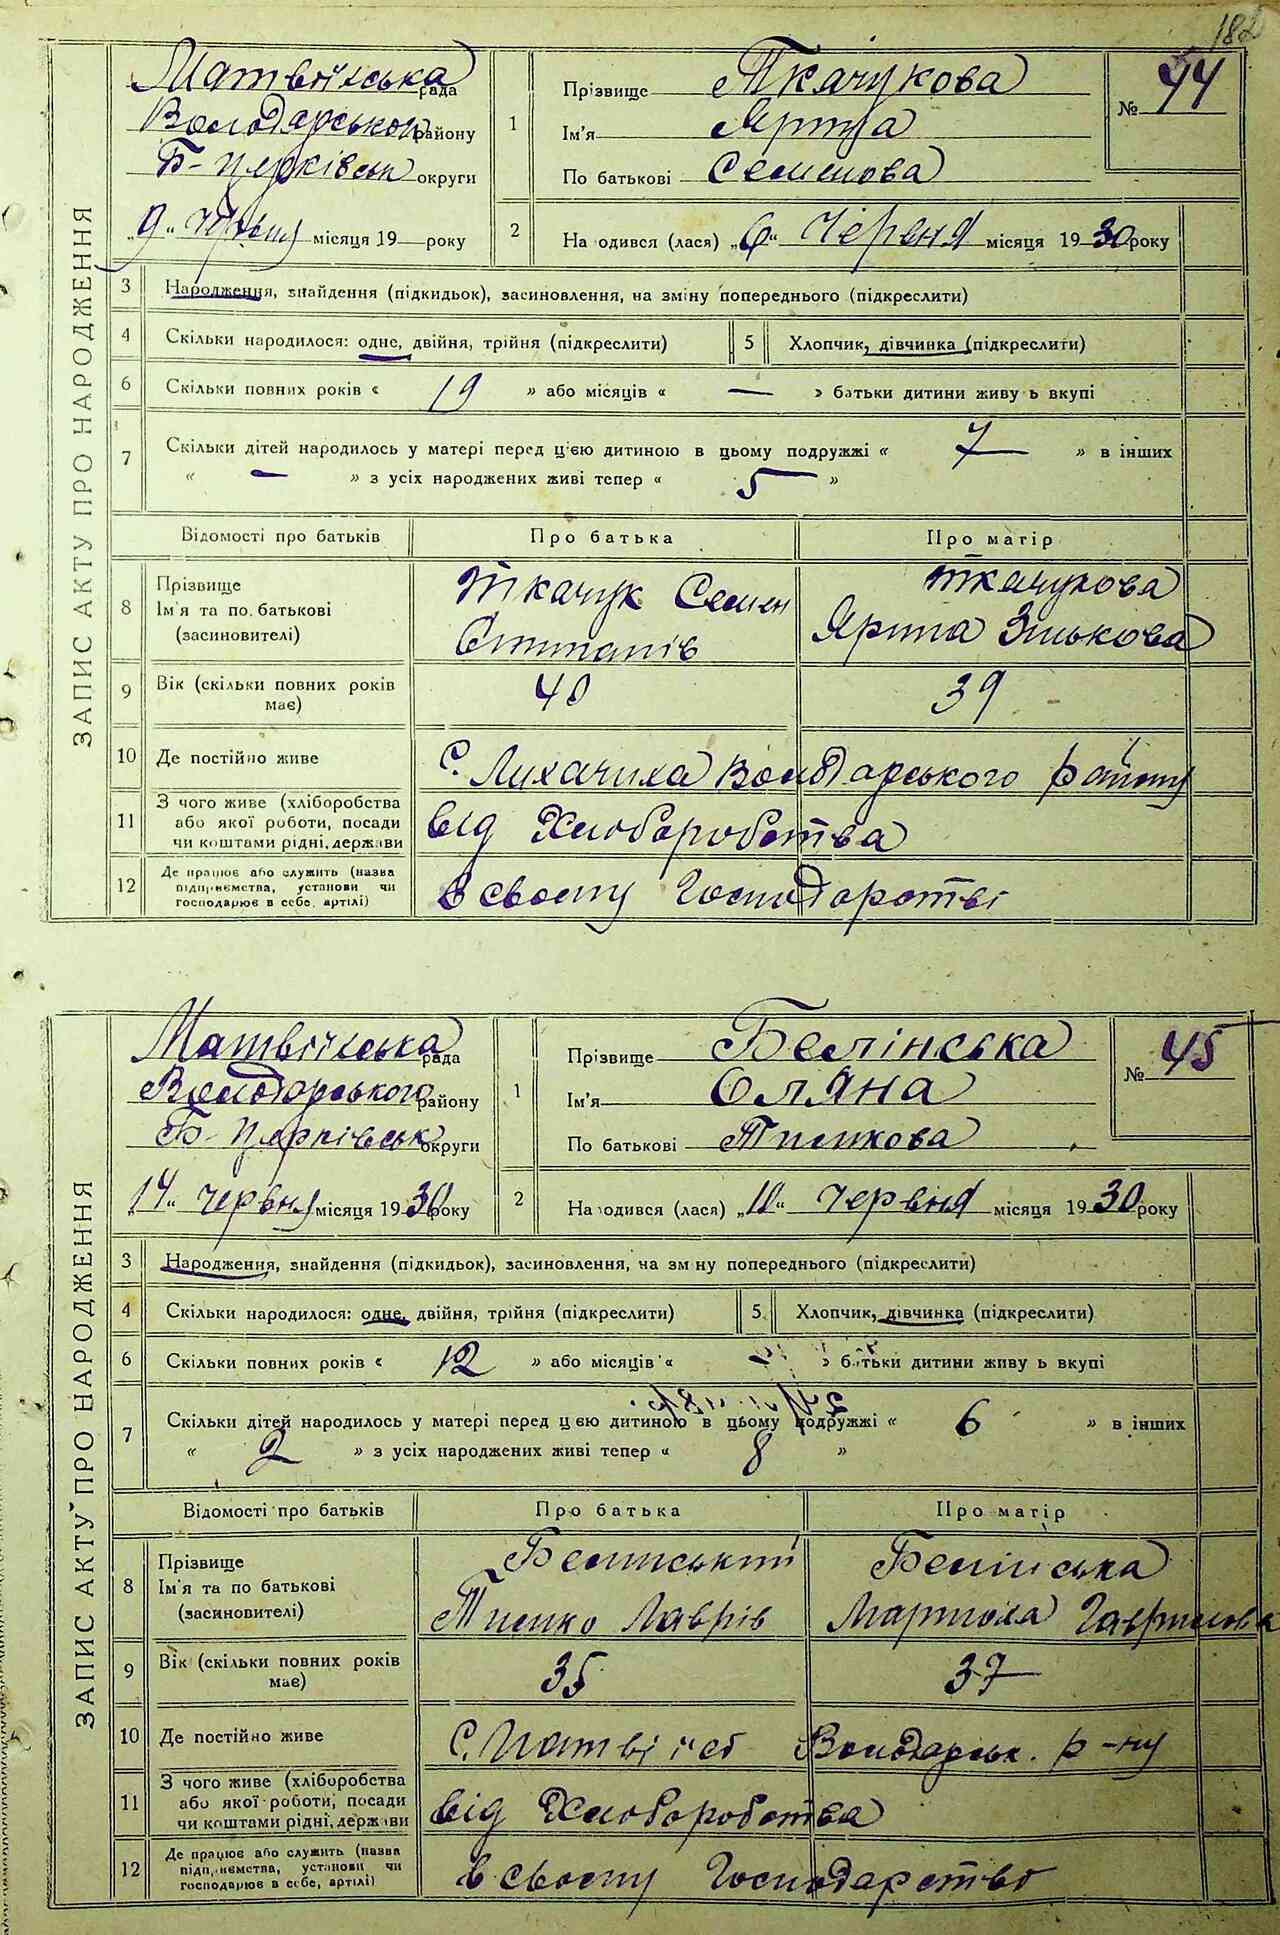 182
ЗАПИС АКТУ ПРО НАРОДЖЕННЯ
Матвіїхська рада
Володарського району
Б-Церківськ округи
"9" червня місяця 19 — року
1 Прізвище Ткачукова
Ім'я Ярина
По батькові Семенова
№ 44
2 На одився (лася) "6" Червня місяця 1930 року
3 Народження, знайдення (підкидьок), засиновлення, на зміну попереднього (підкреслити)
4 Скільки народилося: одне, двійня, трійня (підкреслити) 5 Хлопчик, дівчинка (підкреслити)
6 Скільки повних років « 19 » або місяців « — » батьки дитини живу ь вкупі
7 Скільки дітей народилось у матері перед ц'єю дитиною в цьому подружжі « 7 » в інших
« — » з усіх народжених живі тепер « 5 »
Відомості про батьків Про батька Про матір
8 Прізвище Ім'я та по батькові (засиновителі)
Ткачук Семен
Степанів
Ткачукова
Ярина Зінькова
9 Вік (скільки повних років має) 40 39
10 Де постійно живе С. Лихачиха Володарського району
11 З чого живе (хліборобства або якої роботи, посади чи коштами рідні, держави від Хліборобства
12 Де працює або служить (назва підприємства, установи чи господарює в себе, артілі) в своєму Господарстві
ЗАПИС АКТУ ПРО НАРОДЖЕННЯ
Матвіїхська рада
Володарського району
Б-Церківськ округи
"14" червня місяця 1930 року
1 Прізвище Белінська
Ім'я Оляна
По батькові Тимкова
№ 45
2 На одився (лася) "10" Червня місяця 1930 року
3 Народження, знайдення (підкидьок), засиновлення, на зм ну попереднього (підкреслити)
4 Скільки народилося: одне, двійня, трійня (підкреслити) 5 Хлопчик, дівчинка (підкреслити)
6 Скільки повних років « 12 » або місяців « » батьки дитини живу ь вкупі
7 Скільки дітей народилось у матері перед цією дитиною в цьому подружжі « 6 » в інших
« 2 » з усіх народжених живі тепер « 8 »
Відомості про батьків Про батька Про матір
8 Прізвище Ім'я та по батькові (засиновителі)
Белінський
Тимко Лаврів
Белінська
Мартоха Гаврилова
9 Вік (скільки повних років має) 35 37
10 Де постійно живе С. Матвіїсі Володарськ. р-ну
11 З чого живе (хліборобства або якої роботи, посади чи коштами рідні, держави від Хліборобства
12 Де працює або служить (назва підприємства, установи чи господарює в себе, артілі) в своєму Господарстві